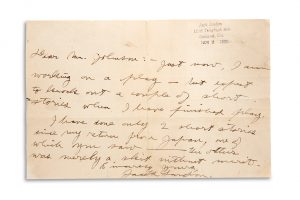 Jack London
Oakland, Cal.
NOV 2
Dear Mr. Johnson: - Just now, I am
working on a play - but expect
to knock out a couple of short
stories when I have finished play.
I have some only 2 short stories
since my return from Japan, one of
which you saw The other
was merely a skit without merit.
Sincerely yours,
Jack London